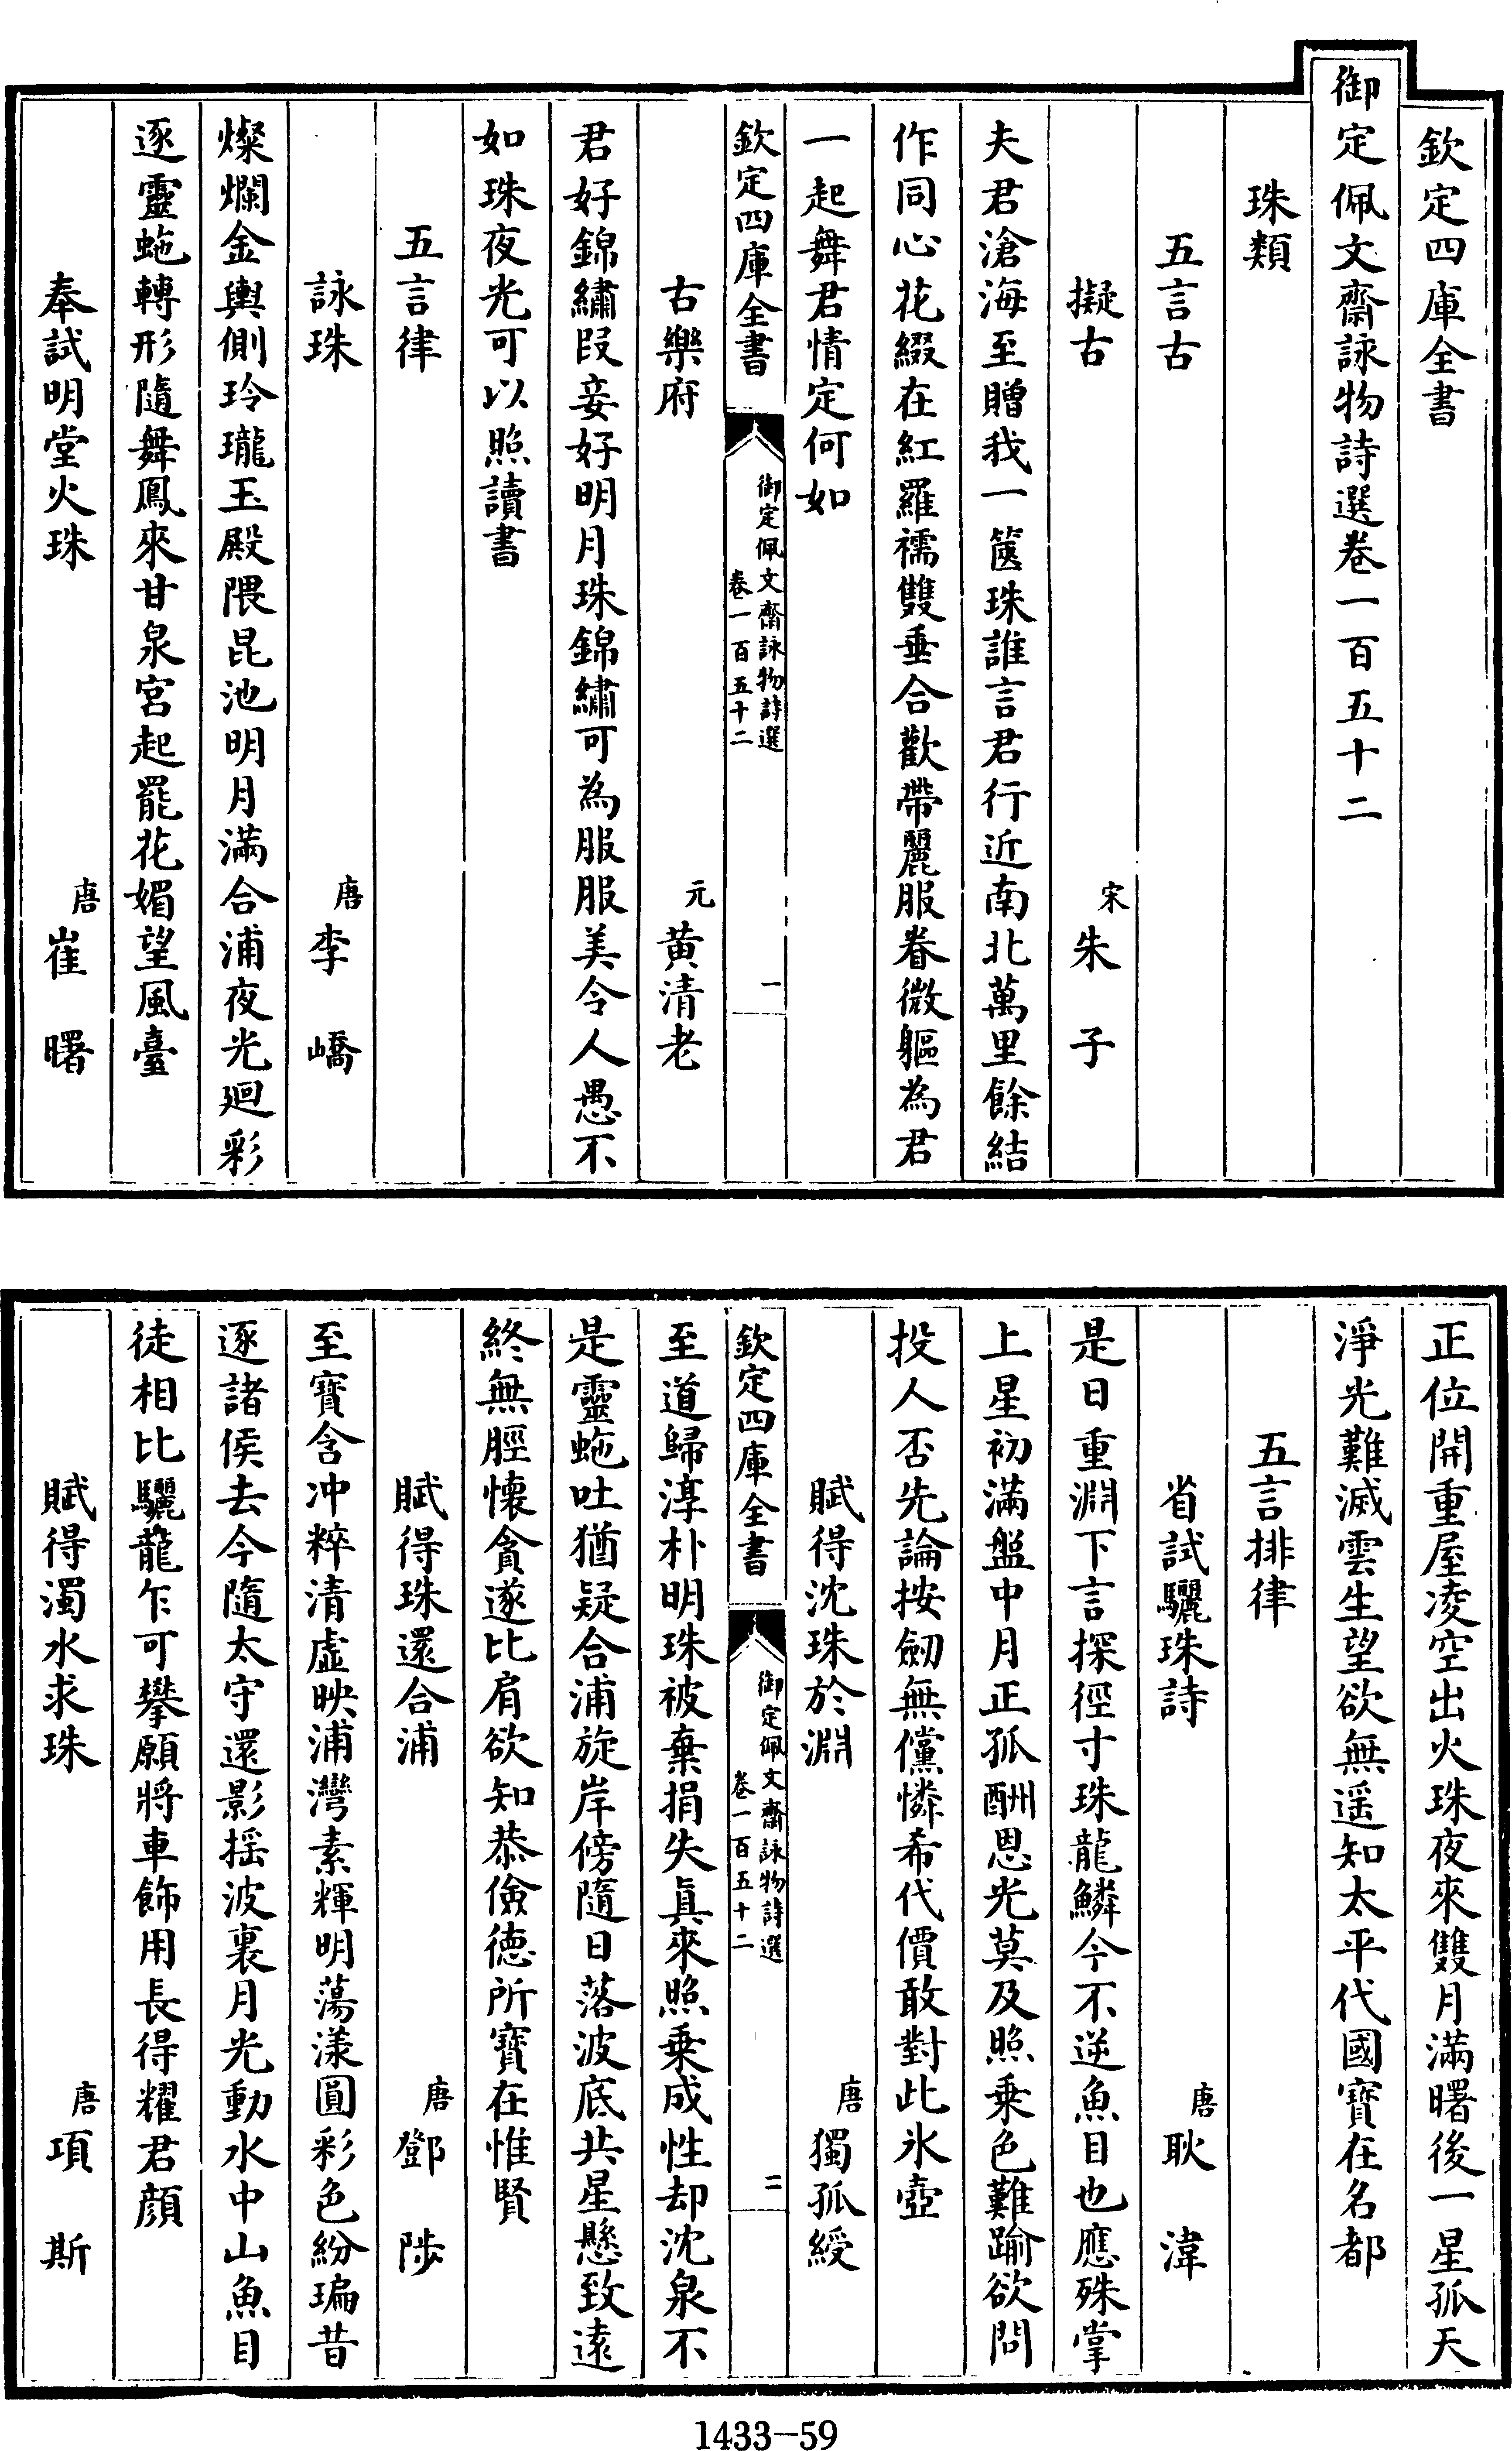 欽定四庫全書
御定佩文齋詠物詩選卷一百五十二
珠類
五言古
擬古 宋 朱子
夫君滄海至贈我一篋珠誰言君行近南北萬里餘結
作同心花綴在紅羅襦雙垂合歡帶麗服眷微軀為君
一起舞君情定何如
欽定四庫全書 御定佩文齋詠物詩選 卷一百五十二 一
古樂府 元 黄清老
君好錦繡段妾好明月珠錦繡可為服服美令人愚不
如珠夜光可以照讀書
五言律
詠珠 唐 李嶠
燦爛金輿側玲瓏玉殿隈昆池明月滿合浦夜光廻彩
逐靈虵轉形隨舞鳳來甘泉宮起罷花媚望風臺
奉試明堂火珠 唐 崔曙
正位開重屋凌空出火珠夜來雙月滿曙後一星孤天
淨光難滅雲生望欲無遥知太平代國寶在名都
五言排律
省試驪珠詩 唐 耿湋
是日重淵下言探徑寸珠龍鱗今不逆魚目也應殊掌
上星初滿盤中月正孤酬恩光莫及照乗色難踰欲問
投人否先論按劒無儻憐希代價敢對此氷壺
賦得沈珠於淵 唐 獨孤綬
欽定四庫全書 御定佩文齋詠物詩選 卷一百五十二 二
至道歸淳朴明珠被棄捐失眞來照乗成性却沈泉不
是靈虵吐猶疑合浦旋岸傍隨日落波底共星懸致逺
終無脛懷貪遂比肩欲知恭儉德所寶在惟賢
賦得珠還合浦 唐 鄧陟
至寶含冲粹清虛映浦灣素輝明蕩漾圓彩色紛㻞昔
逐諸侯去今隨太守還影揺波裏月光動水中山魚目
徒相比驪龍乍可攀願將車飾用長得耀君顔
賦得濁水求珠 唐 項斯
1433-59